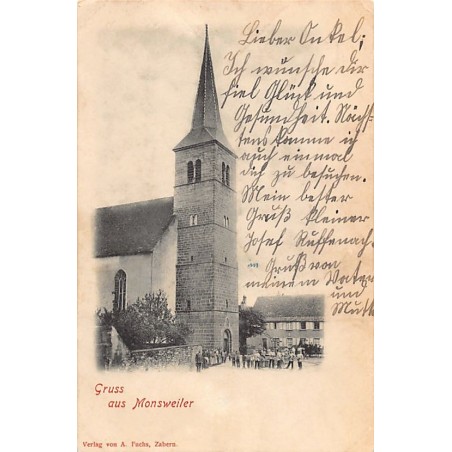 Lieber Onkel;
Ich wünsche dir
fiel Glück und
Gesundheit. Nächs-
tens komme ich
auch einmal
dich zu besuchen.
Mein bester
Gruß kleiner
Josef Ruffenach
Gruß von
meinem Vater
und
Mutter
Gruss
aus Monsweiler
Verlag von A. Fuchs, Zabern.